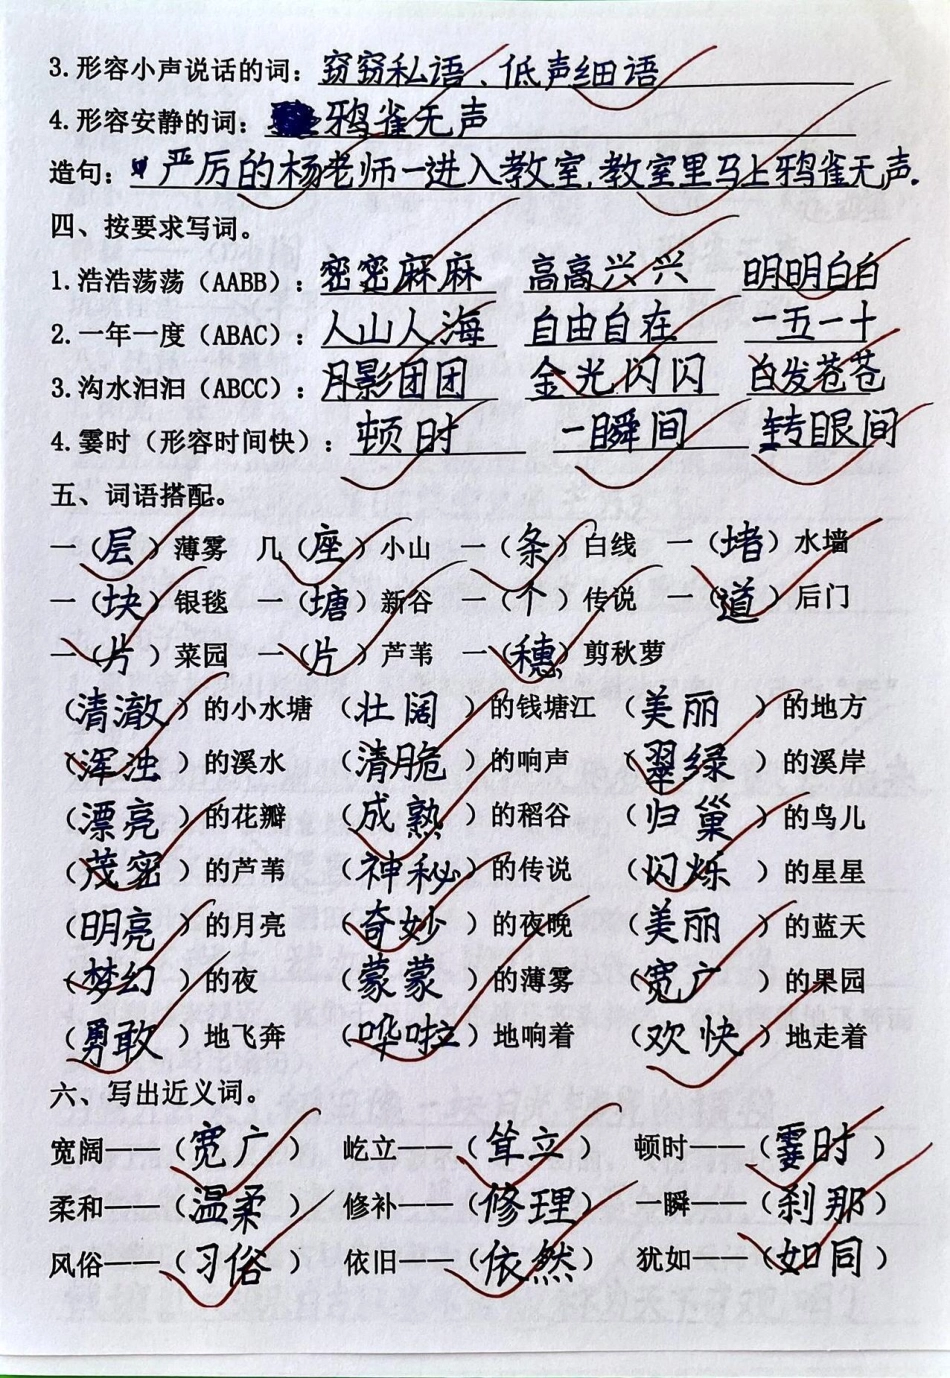 3.形容小声说话的词：窃窃私语、低声细语
4.形容安静的词：鸦雀无声
造句：严厉的杨老师一进入教室,教室里马上鸦雀无声.
四、按要求写词。
1.浩浩荡荡（AABB）：密密麻麻 高高兴兴 明明白白
2.一年一度（ABAC）：人山人海 自由自在 一五一十
3.沟水汩汩（ABCC）：月影团团 金光闪闪 白发苍苍
4.霎时（形容时间快）：顿时 一瞬间 转眼间
五、词语搭配。
一（层）薄雾 几（座）小山 一（条）白线 一（堵）水墙
一（块）银毯 一（塘）新谷 一（个）传说 一（道）后门
一（片）菜园 一（片）芦苇 一（穗）剪秋萝
（清澈）的小水塘 （壮阔）的钱塘江 （美丽）的地方
（浑浊）的溪水 （清脆）的响声 （翠绿）的溪岸
（漂亮）的花瓣 （成熟）的稻谷 （归巢）的鸟儿
（茂密）的芦苇 （神秘）的传说 （闪烁）的星星
（明亮）的月亮 （奇妙）的夜晚 （美丽）的蓝天
（梦幻）的夜 （蒙蒙）的薄雾 （宽广）的果园
（勇敢）地飞奔 （哗啦）地响着 （欢快）地走着
六、写出近义词。
宽阔——（宽广） 屹立——（耸立） 顿时——（霎时）
柔和——（温柔） 修补——（修理） 一瞬——（刹那）
风俗——（习俗） 依旧——（依然） 犹如——（如同）